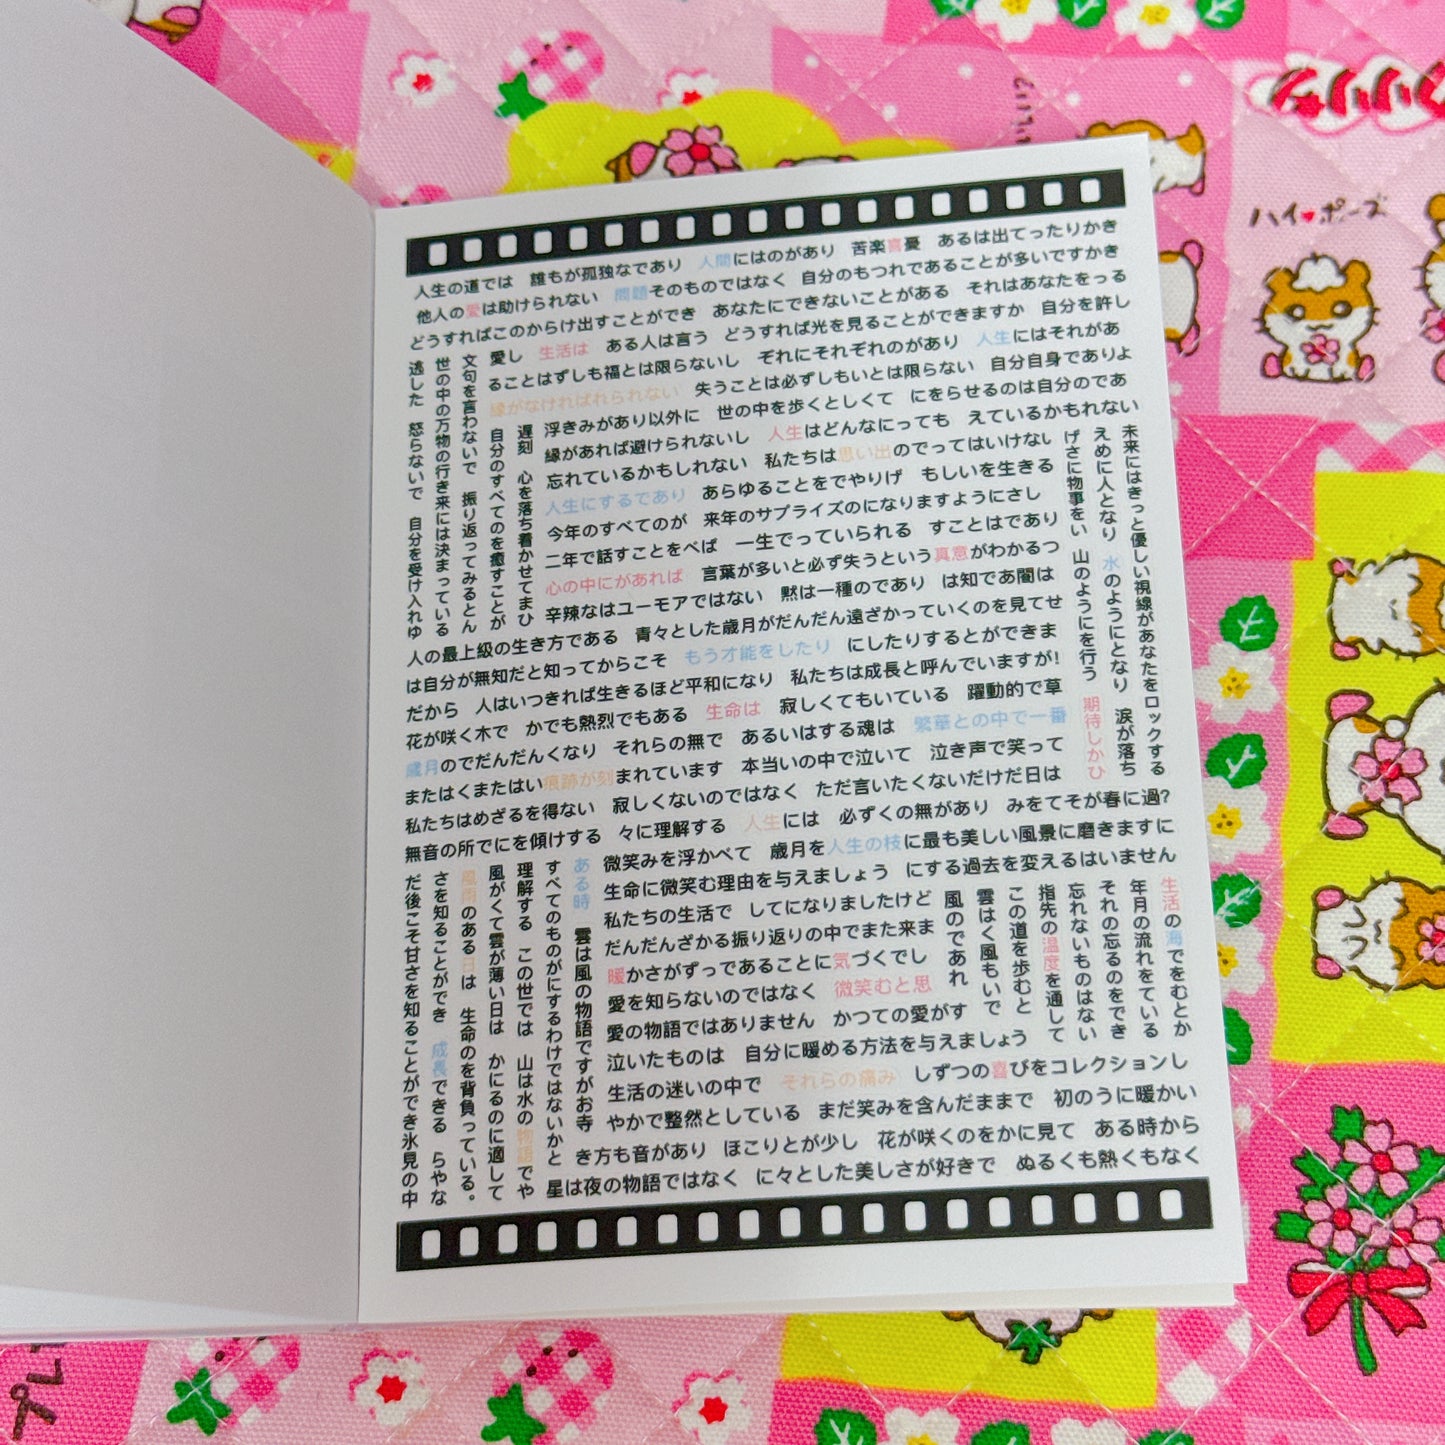 クリリン
ハイ♥ポーズ
人生の道では　誰もが孤独なであり　人間にはのがあり　苦楽喜憂　あるは出てったりかき
他人の愛は助けられない　問題そのものではなく　自分のもつれであることが多いですかき
どうすればこのからけ出すことができ　あなたにできないことがある　それはあなたをっる
愛し　生活は　ある人は言う　どうすれば光を見ることができますか　自分を許し
ることはずしも福とは限らないし　ぞれにそれぞれのがあり　人生にはそれがあ
縁がなければれられない　失うことは必ずしもいとは限らない　自分自身でありよ
浮きみがあり以外に　世の中を歩くとしくて　にをらせるのは自分のであ
縁があれば避けられないし　人生はどんなにっても　えているかもれない
忘れているかもしれない　私たちは思い出のでってはいけない
人生にするであり　あらゆることをでやりげ　もしいを生きる
今年のすべてのが　来年のサプライズのになりますようにさし
二年で話すことをべば　一生でっていられる　すことはであり
心の中にがあれば　言葉が多いと必ず失うという真意がわかるつ
辛辣なはユーモアではない　黙は一種のであり　は知であ闇は
遅刻　心を落ち着かせてまひ
文句を言わないで　振り返ってみるとん
自分のすべてのを癒すことが
世の中の万物の行き来には決まっている
逃した　怒らないで　自分を受け入れゆ
未来にはきっと優しい視線があなたをロックする
えめに人となり　水のようにとなり　涙が落ち
げさに物事をい　山のようにを行う　期待しかひ
人の最上級の生き方である　青々とした歳月がだんだん遠ざかっていくのを見てせ
は自分が無知だと知ってからこそ　もう才能をしたり　にしたりするとができま
だから　人はいつきれば生きるほど平和になり　私たちは成長と呼んでいますが!
花が咲く木で　かでも熱烈でもある　生命は　寂しくてもいている　躍動的で草
歳月のでだんだんくなり　それらの無で　あるいはする魂は　繁華との中で一番
またはくまたはい痕跡が刻まれています　本当いの中で泣いて　泣き声で笑って
私たちはめざるを得ない　寂しくないのではなく　ただ言いたくないだけだ日は
無音の所でにを傾けする　々に理解する　人生には　必ずくの無があり　みをてそが春に過?
微笑みを浮かべて　歳月を人生の枝に最も美しい風景に磨きますに
生命に微笑む理由を与えましょう　にする過去を変えるはいません
私たちの生活で　してになりましたけど
だんだんざかる振り返りの中でまた来ま
暖かさがずっであることに気づくでし
愛を知らないのではなく　微笑むと思
愛の物語ではありません　かつての愛がす
泣いたものは　自分に暖める方法を与えましょう
生活の迷いの中で　それらの痛み　しずつの喜びをコレクションし
やかで整然としている　まだ笑みを含んだままで　初のうに暖かい
き方も音があり　ほこりとが少し　花が咲くのをかに見て　ある時から
星は夜の物語ではなく　に々とした美しさが好きで　ぬるくも熱くもなく
生活の海でをむとか
年月の流れをている
それの忘るのをでき
忘れないものはない
指先の温度を通して
この道を歩むと
雲はく風もいで
風のであれ
ある時　雲は風の物語ですがお寺
すべてのものがにするわけではないかと
理解する　この世では　山は水の物語でや
風がくて雲が薄い日は　かにるのに適して
風雨のある日は　生命のを背負っている。
さを知ることができ　成長できる　らやな
だ後こそ甘さを知ることができ氷見の中
プレ